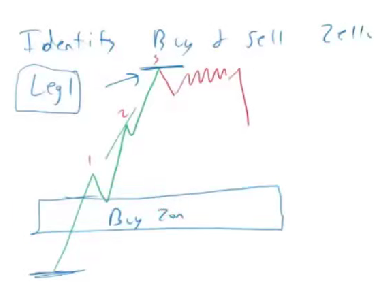 Identity Buy & Sell Zell
3
Leg 1
2
1
Buy Zun